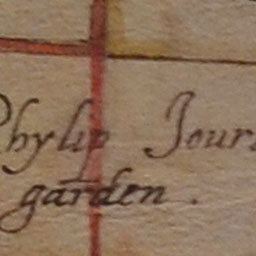 Phylip Jour
garden .